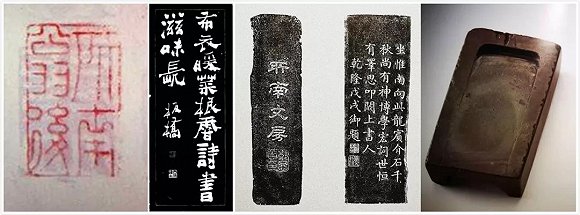 所南
翁後
布衣暖菜根香詩書
滋味長 板橋
所南文房
坐惟南向此龍賓介石千
秋尚有神博學宏詞世恒
有等思叩闕上書人
乾隆戊戌御題